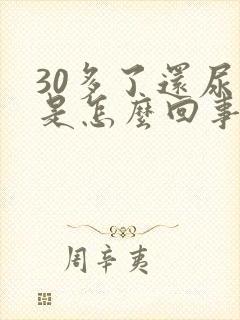 30多了還尿
是怎麼回事
周辛夷